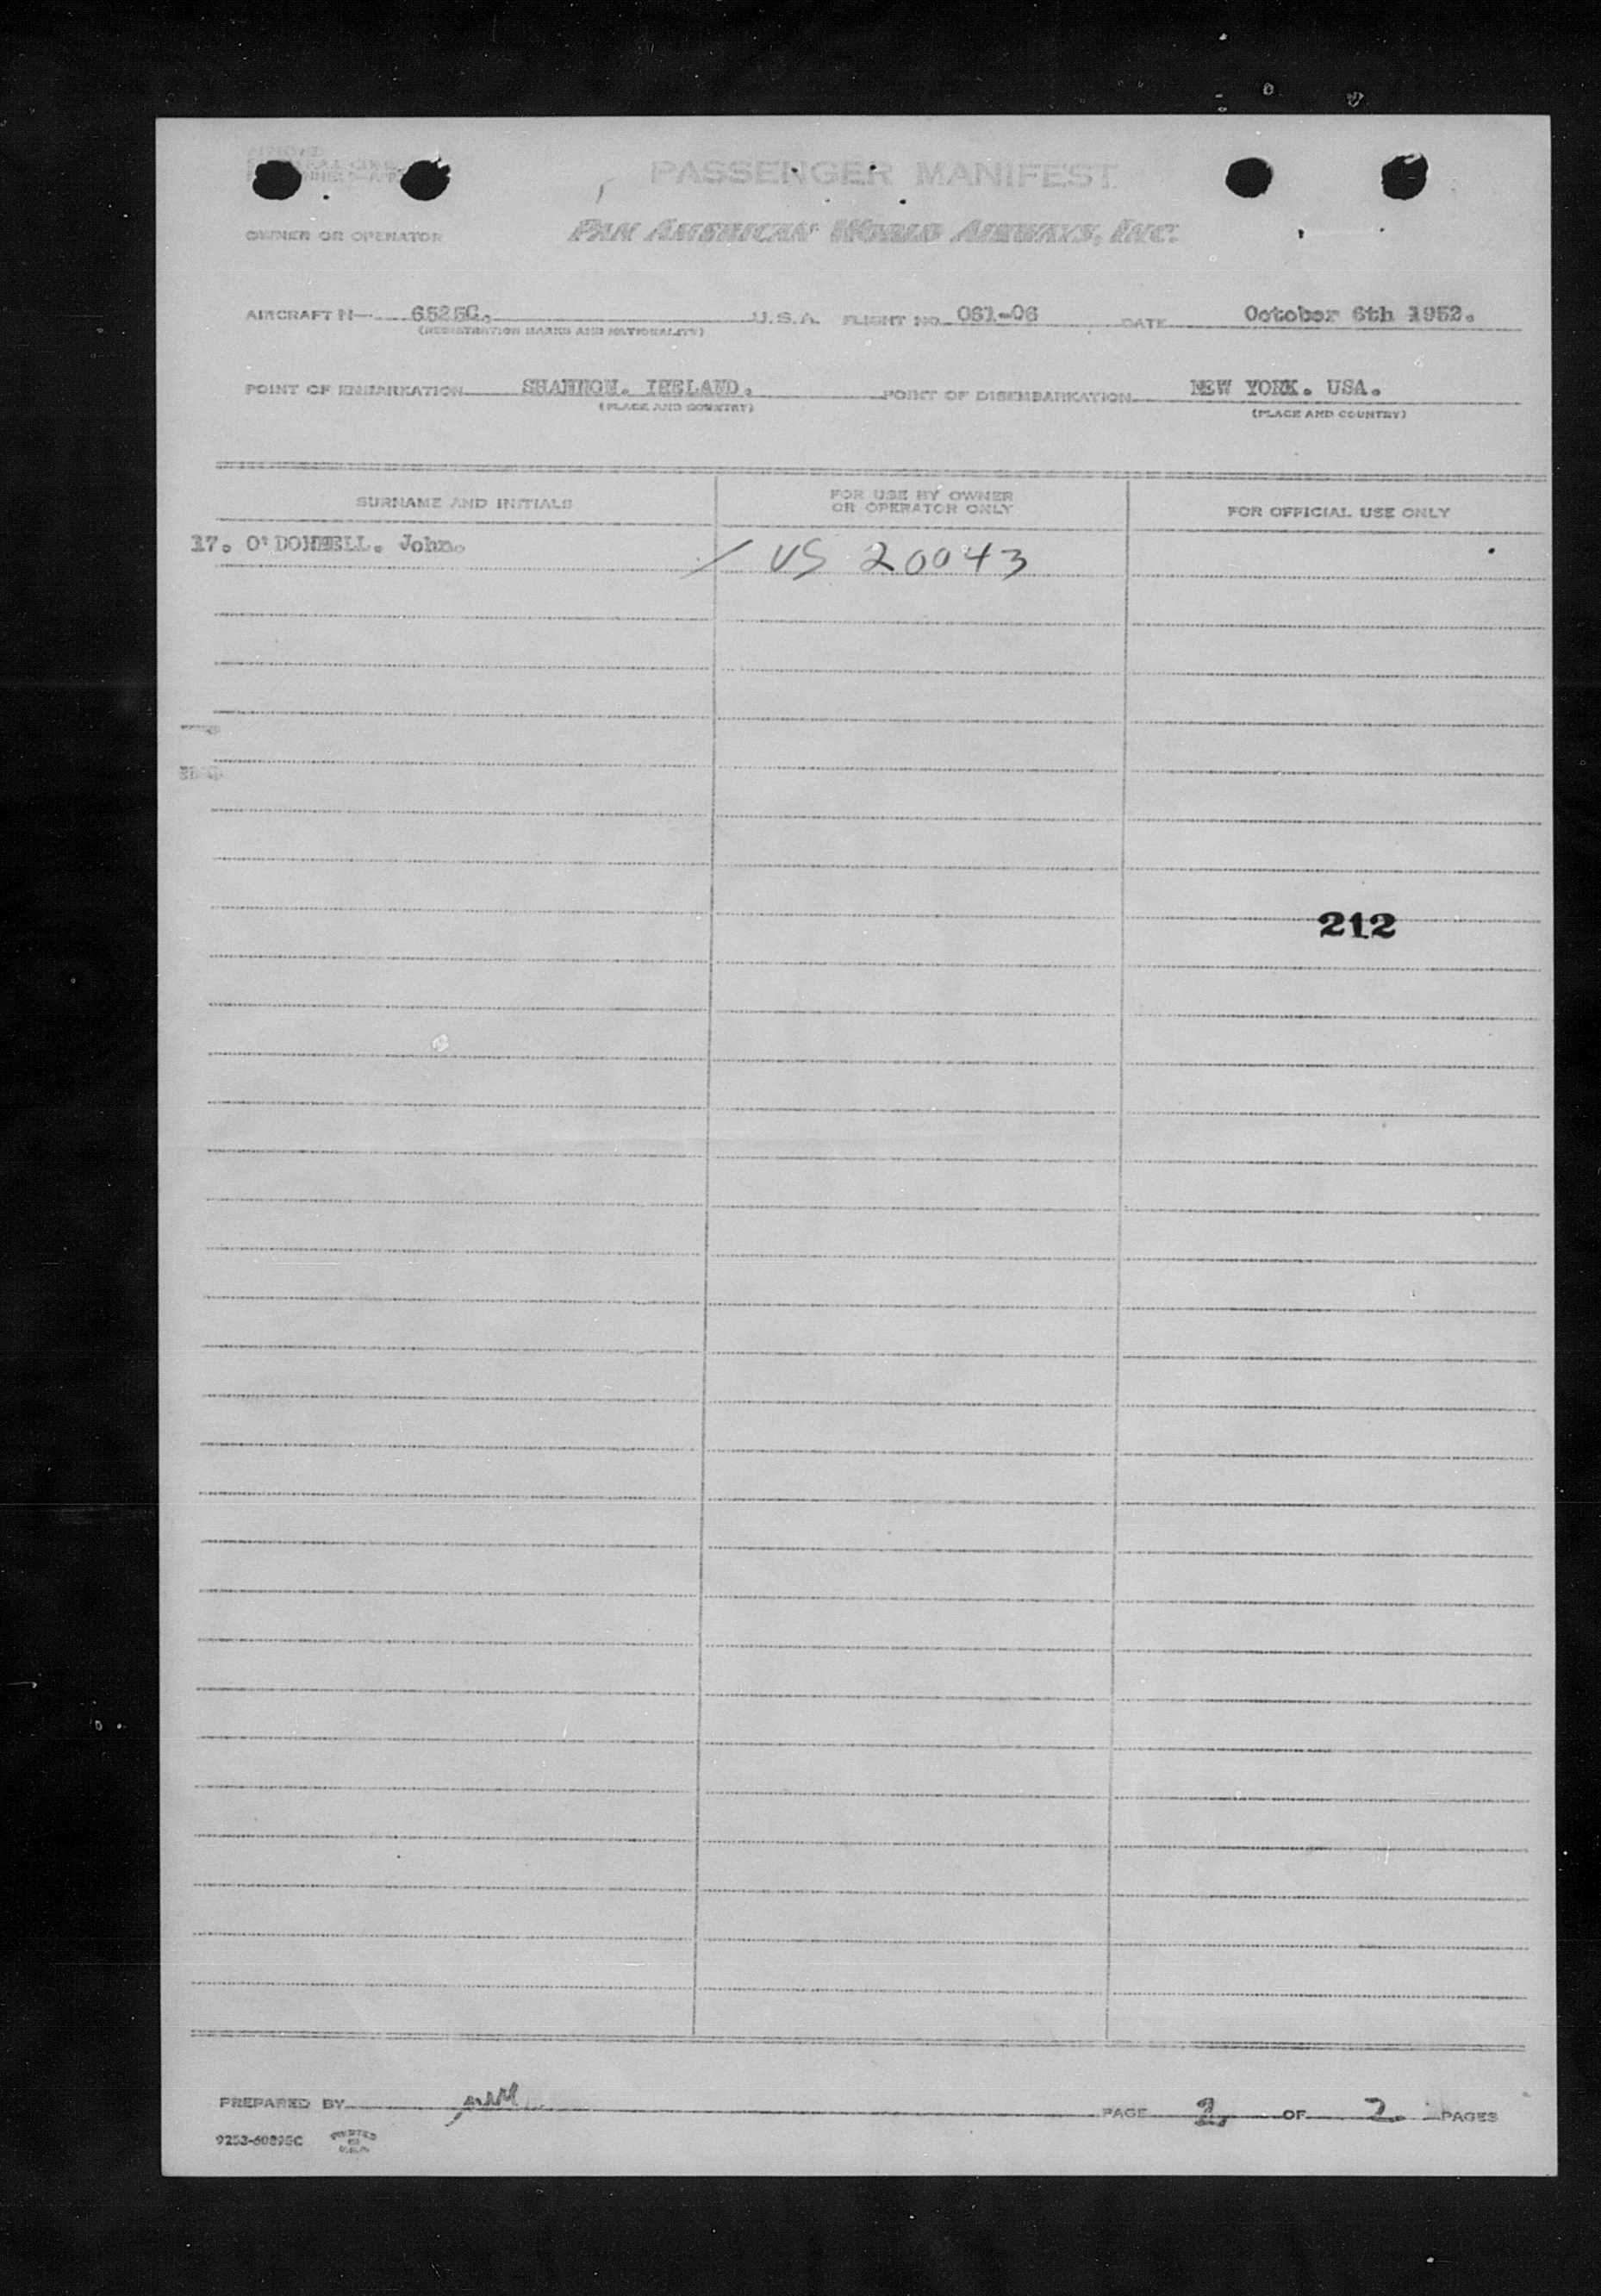 PASSENGER MANIFEST
OWNER OR OPERATOR PAN AMERICAN WORLD AIRWAYS, INC.
AIRCRAFT N 6525C. U.S.A. FLIGHT NO. 061-06 DATE October 6th 1952.
(REGISTRATION MARKS AND NATIONALITY)
POINT OF EMBARKATION SHANNON. IRELAND. POINT OF DISEMBARKATION NEW YORK. USA.
(PLACE AND COUNTRY) (PLACE AND COUNTRY)
SURNAME AND INITIALS FOR USE BY OWNER OR OPERATOR ONLY FOR OFFICIAL USE ONLY
17. O'DONNELL. John. / US 20043
212
PREPARED BY PAGE 2. OF 2. PAGES
9253-60895C PRINTED IN